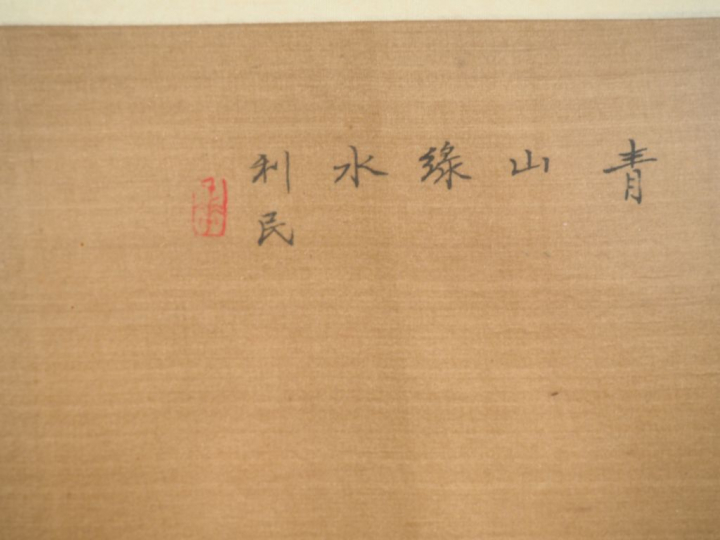 青山綠水
利民